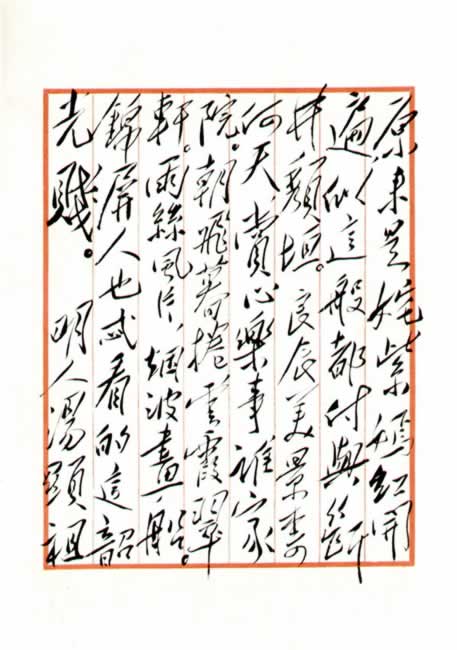 原来是姹紫嫣紅開
遍、似這般都付與斷
井頹垣。良辰美景奈
何天、賞心樂事誰家
院。朝飛暮捲雲霞翠
軒。雨絲風片、烟波畫船。
錦屏人也忒看的這韶
光賤。 明人湯顯祖